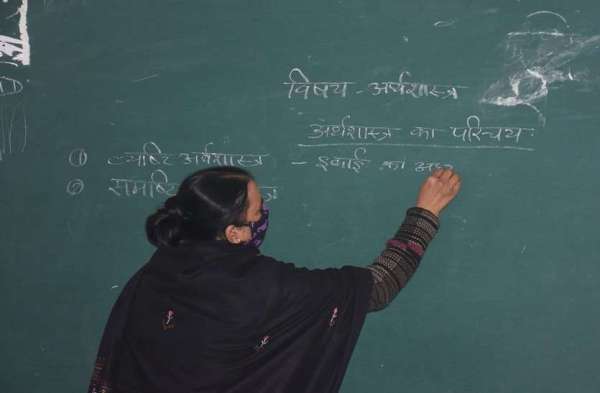 विषय - अर्थशास्त्र
अर्थशास्त्र का परिचय
① व्यष्टि अर्थशास्त्र - इकाई का
② समष्टि